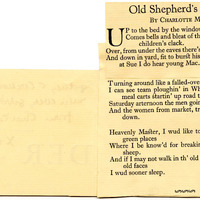 Old Shepherd's
BY CHARLOTTE M
UP to the bed by the window
Comes bells and bleat of th
children's clack.
Over, from under the eaves there's
And down in yard, fit to burst his
at Sue I do hear young Mac.
Turning around like a falled-over
I can see team ploughin' in Wh
meal carts startin' up road t
Saturday afternoon the men goin
And the women from market, tr
down.
Heavenly Master, I wud like to
green places
Where I be know'd for breaking
sheep.
And if I may not walk in th' old
old faces
I wud sooner sleep.